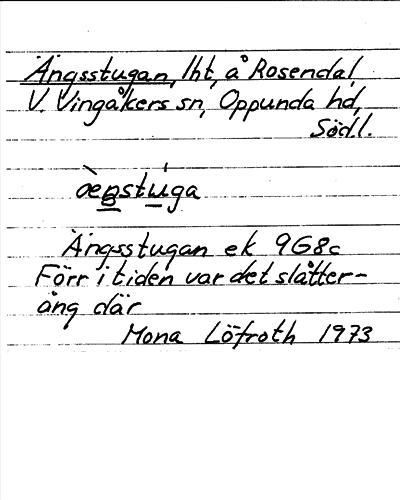 Ängsstugan, lht, å Rosendal,
V. Vingåkers sn, Oppunda hd,
Södl.
æ̀nstúga
Ängsstugan ek 9G8c
Förr i tiden var det slåtter-
äng där
Mona Löfroth 1973